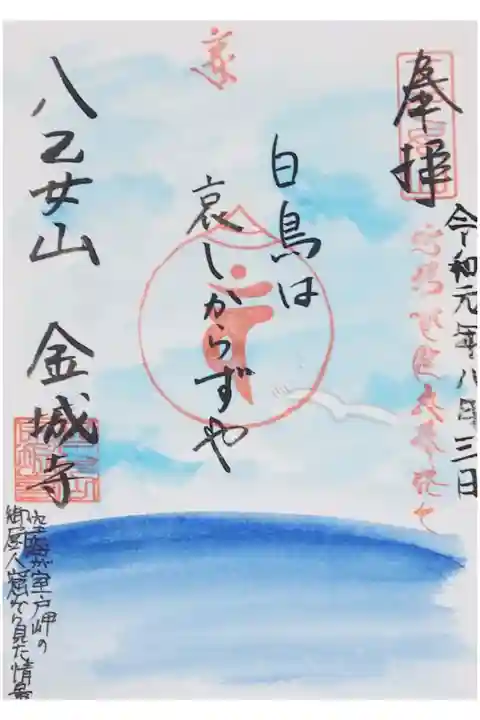 奉拝
令和元年八月三日
白鳥は
哀しからずや
八乙女山 金城寺
空海が室戸岬の
御厨人窟から見た情景